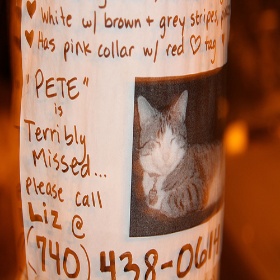 ♥ White w/ brown + grey stripes,
♥ Has pink collar w/ red ♡ tag
"PETE"
is
Terribly
Missed...
please call
Liz @
(740) 438-0614